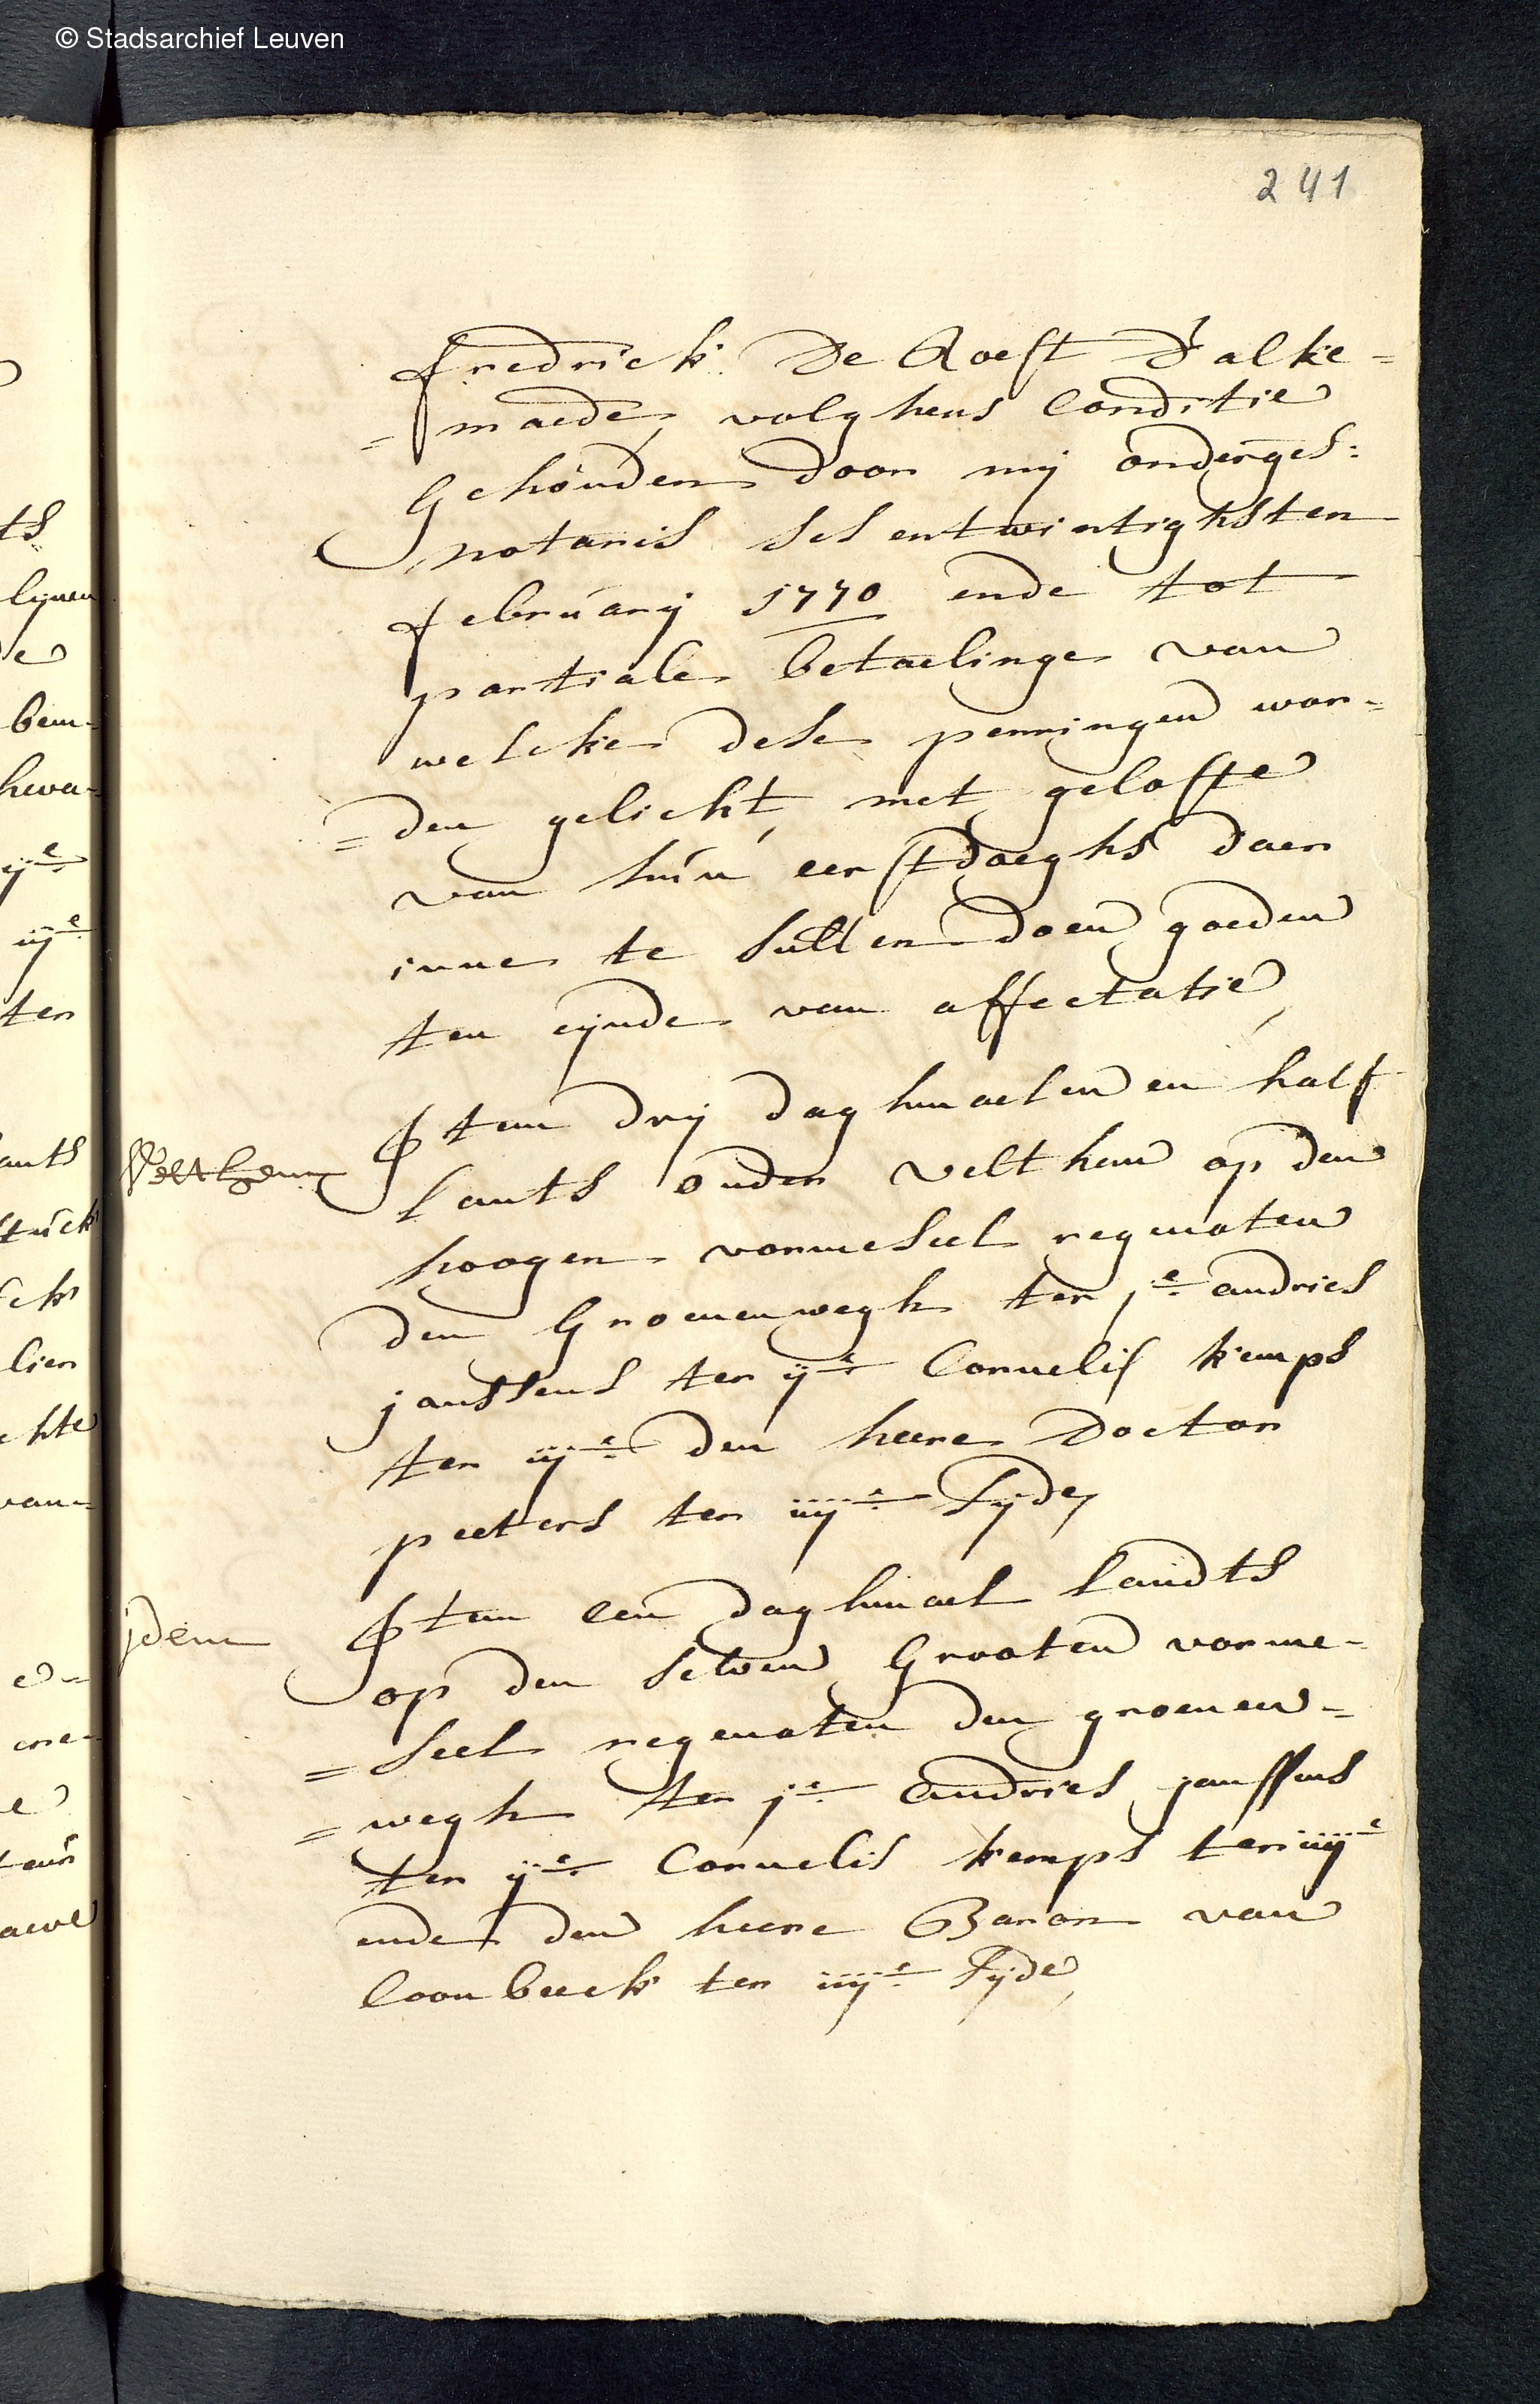 © Stadsarchief Leuven
241
fredrick De Roest D'alke=
=maede, volghens Conditie
Gehouden door mij onderges:
notaris sesentwintighsten
february 1770 ende tot
partiale betaelinge van
welcke dese penningen wor=
=den gelicht, met gelofte
van hun eerstdaeghs daer
inne te sullen doen goeden
ten eijnde van affectatie,
Velthem
Item drij daghmaelen en half
lants onder velthem op den
hoogen vormeseel regnoten
den Groenenwegh ter je andries
janssens ter ije Cornelis kemps
ter iije den heere Doctor
peeters ter iiije sijde,
jdem
Item een daghmael landts
op den selven Grooten vorme=
=seel regenoten den groenen=
=wegh ter je Andries janssens
ter ije Cornelis kemps ter iiije
ende den heere Baron van
Coonbeeck ter iiije sijde,
ts
lijnen
e
bem-
heva-
ije
iije
ten
ants
stuck
ck
lien
chte
van=
e=
ene-
e
teur
aeve